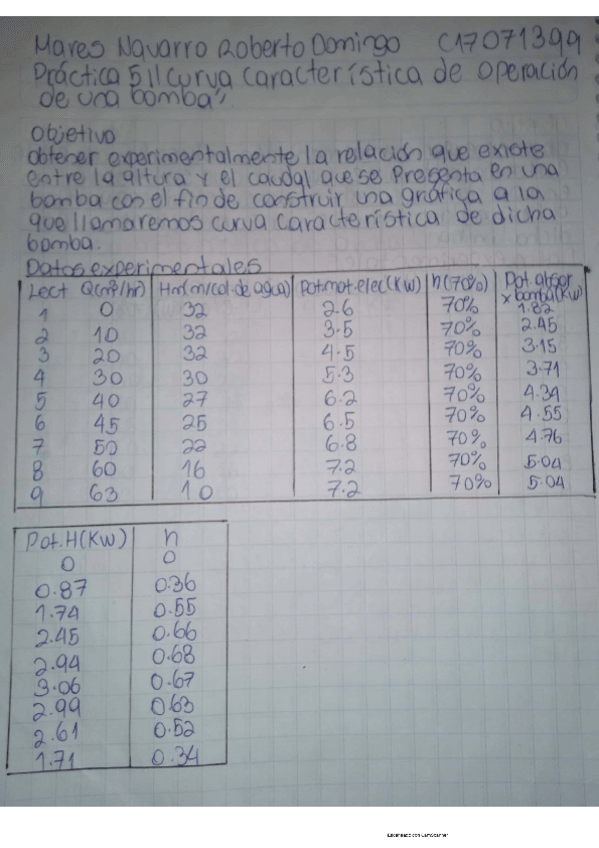 Mares Navarro Roberto Domingo C17071399
Práctica 5 "Curva característica de operación
de una bomba"
Objetivo
Obtener experimentalmente la relación que existe
entre la altura y el caudal que se presenta en una
bomba con el fin de construir una gráfica a la
que llamaremos curva característica de dicha
bomba.
Datos experimentales
Lect Q(m³/hr) Hm(m/col. de agua) Pot.mot.elec(Kw) η(70%) Pot. absor x bomba(Kw)
1 0 32 2.6 70% 1.82
2 10 32 3.5 70% 2.45
3 20 32 4.5 70% 3.15
4 30 30 5.3 70% 3.71
5 40 27 6.2 70% 4.34
6 45 25 6.5 70% 4.55
7 50 22 6.8 70% 4.76
8 60 16 7.2 70% 5.04
9 63 10 7.2 70% 5.04
Pot.H(Kw) η
0 0
0.87 0.36
1.74 0.55
2.45 0.66
2.94 0.68
3.06 0.67
2.99 0.63
2.61 0.52
1.71 0.34
Escaneado con CamScanner